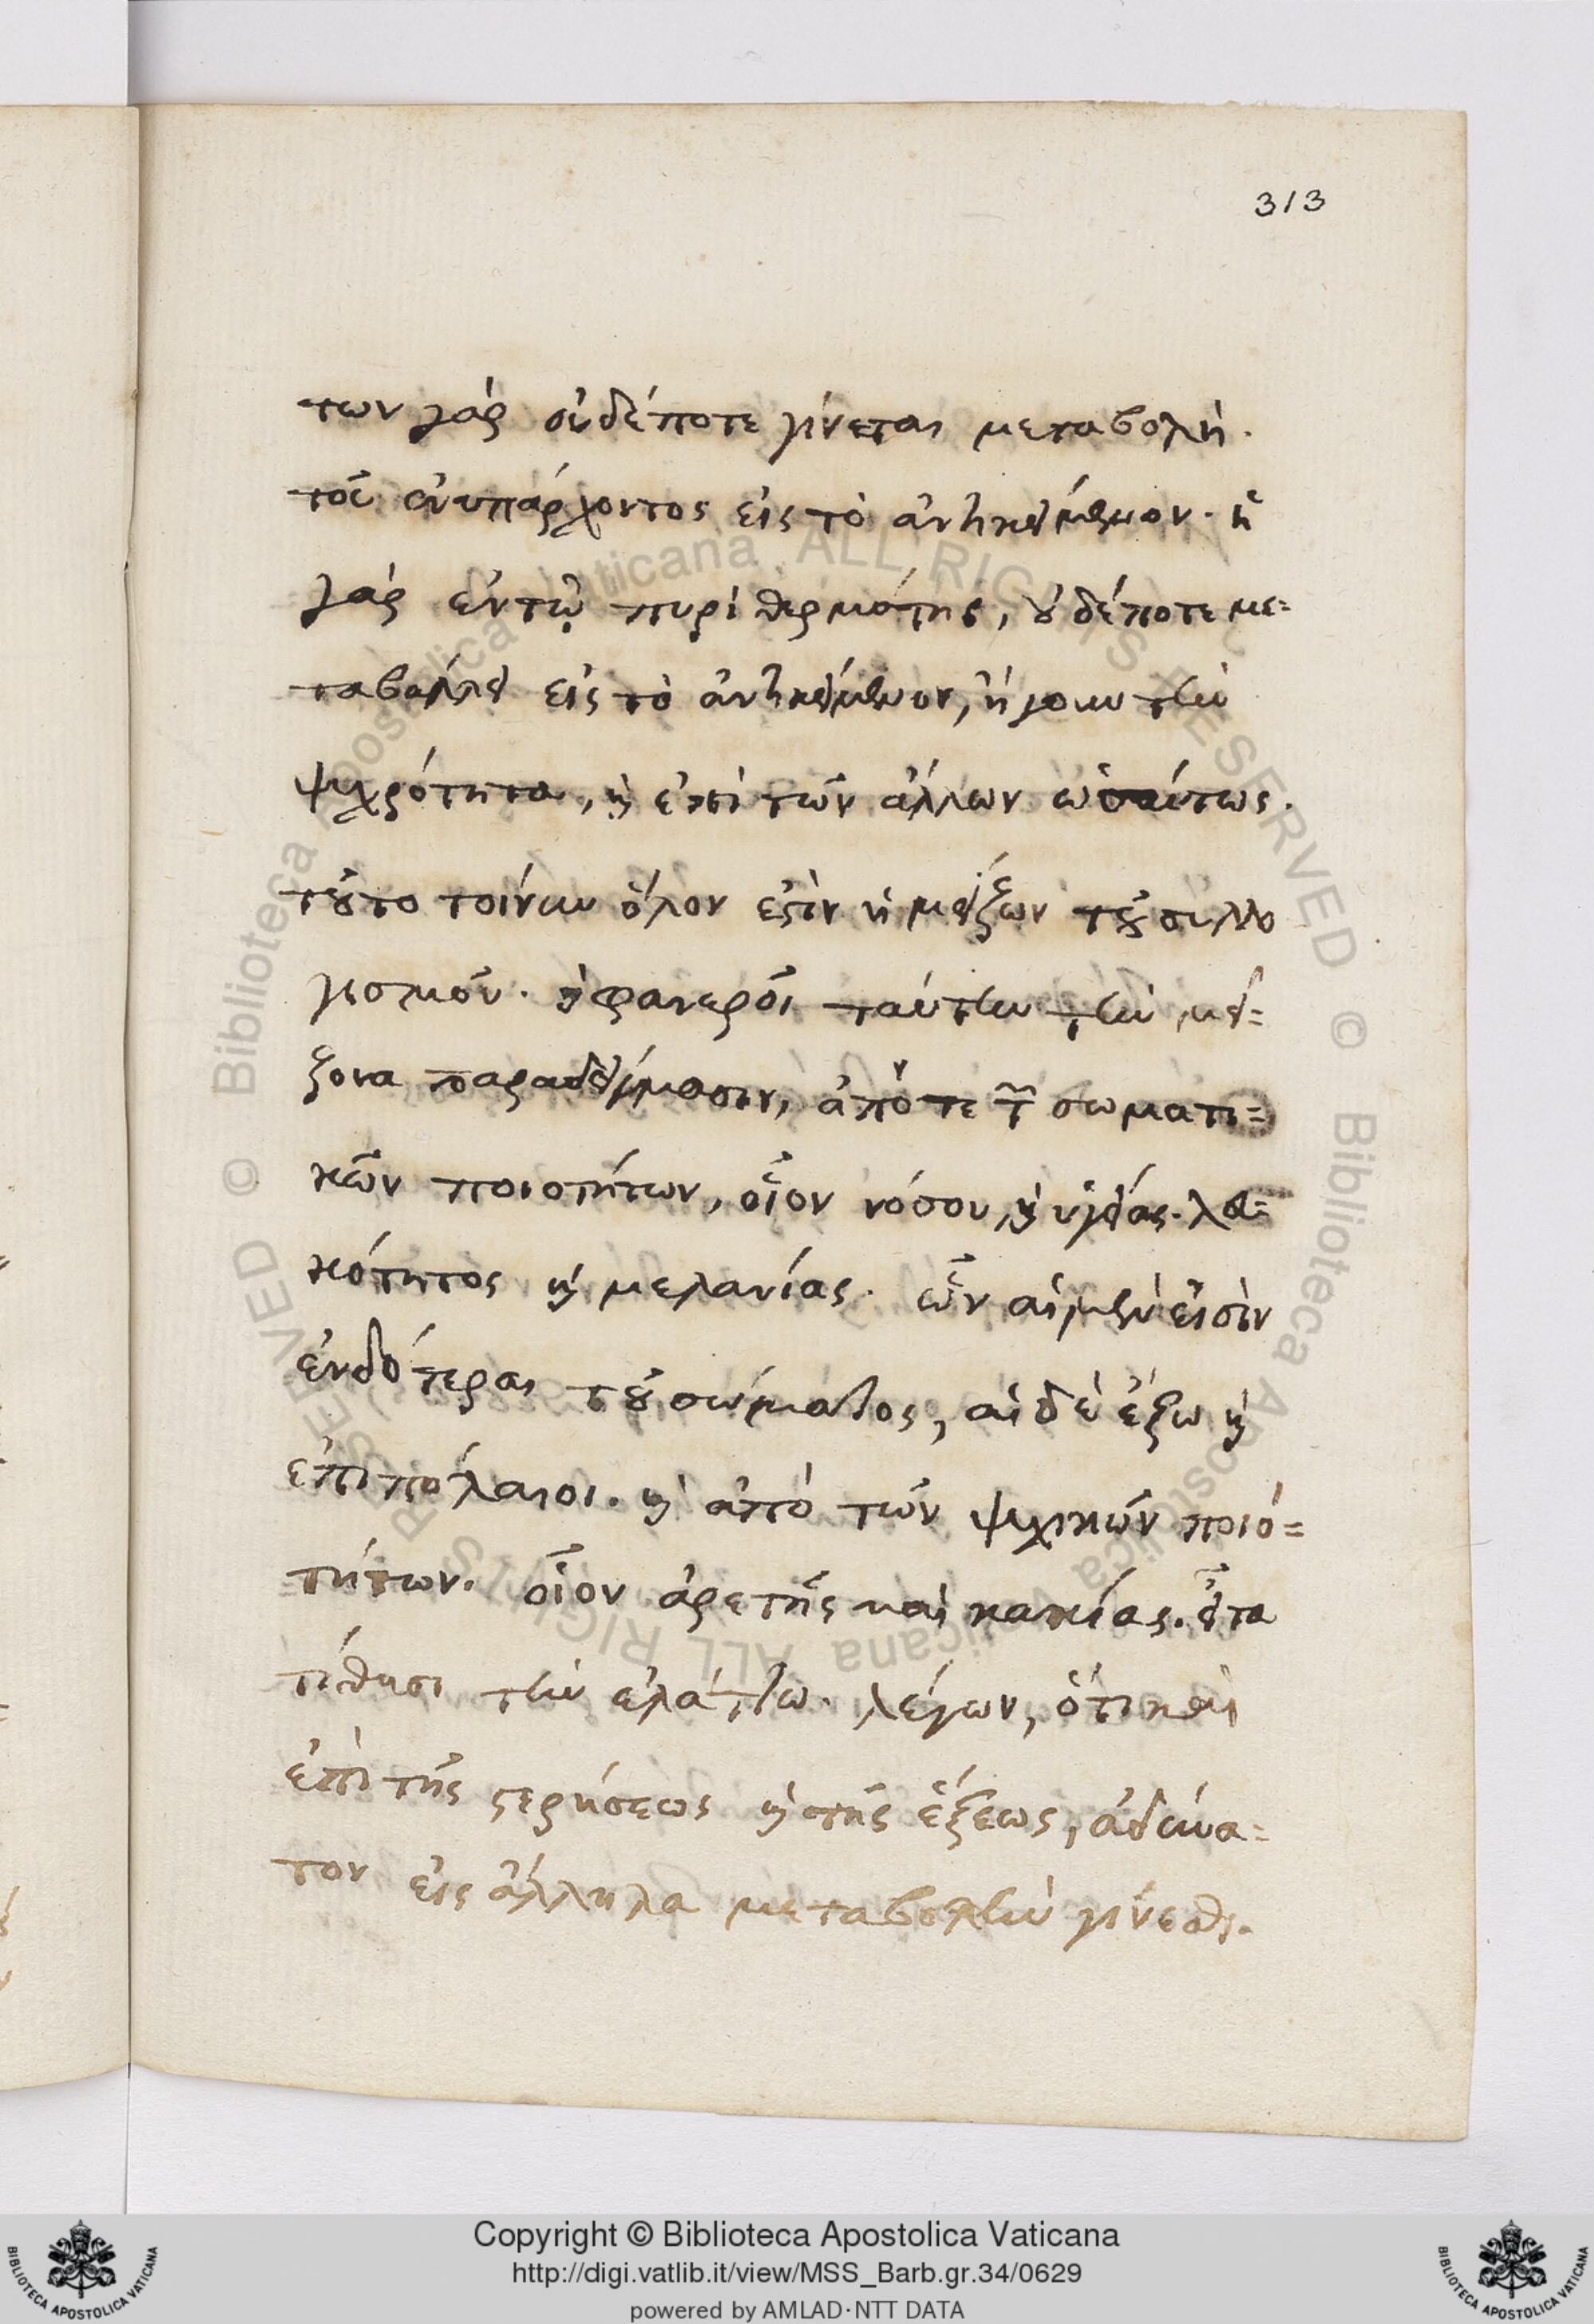 313
των γὰρ οὐδέποτε γίνεται μεταβολὴ.
τοῦ ἐνυπάρχοντος εἰς τὸ ἀντικείμενον. ἡ
γὰρ ἐν τῷ πυρὶ θερμότης, οὐδέποτε με=
ταβάλλει εἰς τὸ ἀντικείμενον, ἤγουν τὴν
ψυχρότητα, καὶ ἐπὶ τῶν ἄλλων ὡσαύτως.
τοῦτο τοίνυν ὅλον ἐστὶν ἡ μείζων τοῦ συλλο
γισμοῦ. καὶ φανεροῖ ταύτην τὴν μεί=
ζονα παραδείγμασιν, ἀπό τε τῶν σωματι=
κῶν ποιοτήτων, οἷον νόσου, καὶ ὑγείας. λευ=
κότητος καὶ μελανίας. ὧν αἱ μὲν εἰσὶν
ἐνδότεραι τοῦ σώματος, αἱ δὲ ἔξω καὶ
ἐπιπόλαιοι. καὶ ἀπὸ τῶν ψυχικῶν ποιο=
τήτων. οἷον ἀρετῆς καὶ κακίας. εἶτα
τίθησι τὴν ἐλάττω. λέγων, ὅτι καὶ
ἐπὶ τῆς στερήσεως καὶ τῆς ἕξεως, ἀδύνα=
τον εἰς ἄλληλα μεταβολὴν γίνεσθαι.
Copyright © Biblioteca Apostolica Vaticana
http://digi.vatlib.it/view/MSS_Barb.gr.34/0629
powered by AMLAD·NTT DATA
BIBLIOTECA APOSTOLICA VATICANA
BIBLIOTECA APOSTOLICA VATICANA
© Biblioteca Apostolica Vaticana ALL RIGHTS RESERVED
© Biblioteca Apostolica Vaticana ALL RIGHTS RESERVED